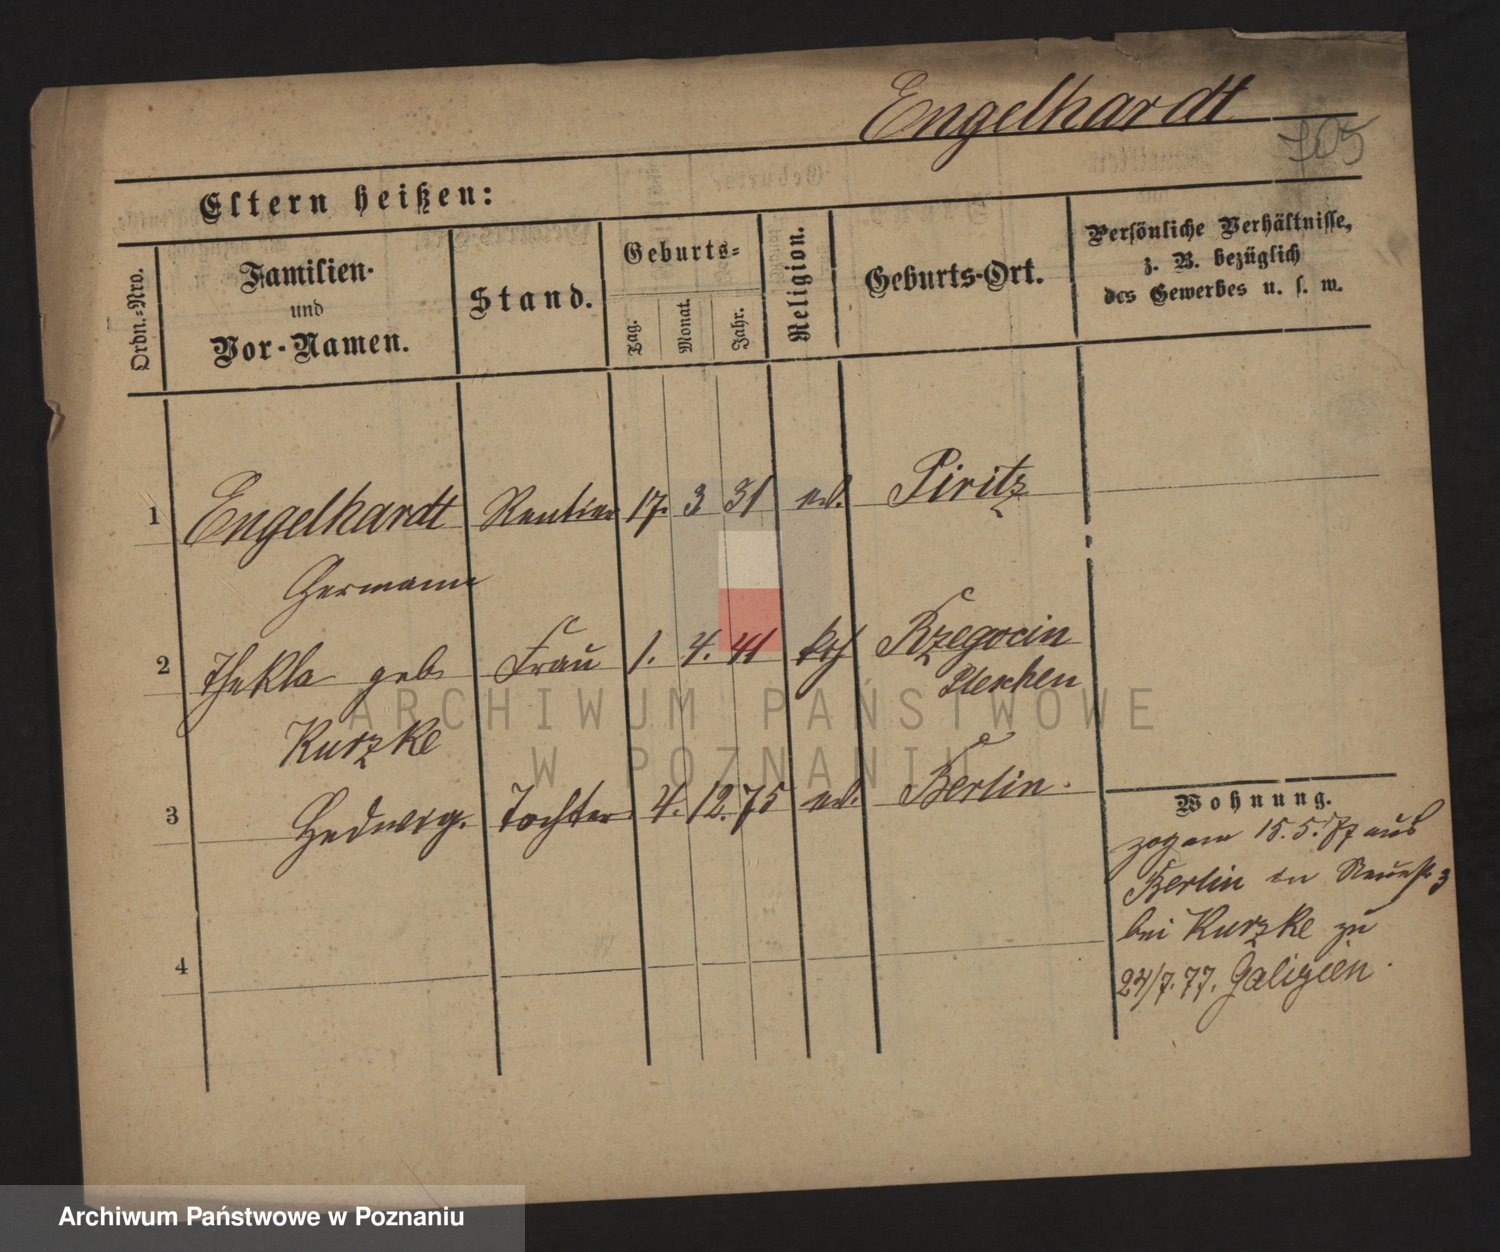 Engelhardt
705
Eltern heißen:
Ordn.-Nro.
Familien-
und
Vor-Namen.
Stand.
Geburts-
Tag.
Monat.
Jahr.
Religion.
Geburts-Ort.
Persönliche Verhältnisse,
z. B. bezüglich
des Gewerbes u. s. w.
1 Engelhardt Rentier 17. 3 31 ev. Piritz
Hermann
2 Thekla geb Frau 1. 4. 41 kth Rzegocin
Pleschen
Kurzke
3 Hedwig. Tochter 4. 12. 75 ev. Berlin.
4
Wohnung.
zog am 15. 5. 77 aus
Berlin in Neuestr 3
bei Kurzke zu
24/7. 77. Galizien.
ARCHIWUM PAŃSTWOWE
W POZNANIU
Archiwum Państwowe w Poznaniu